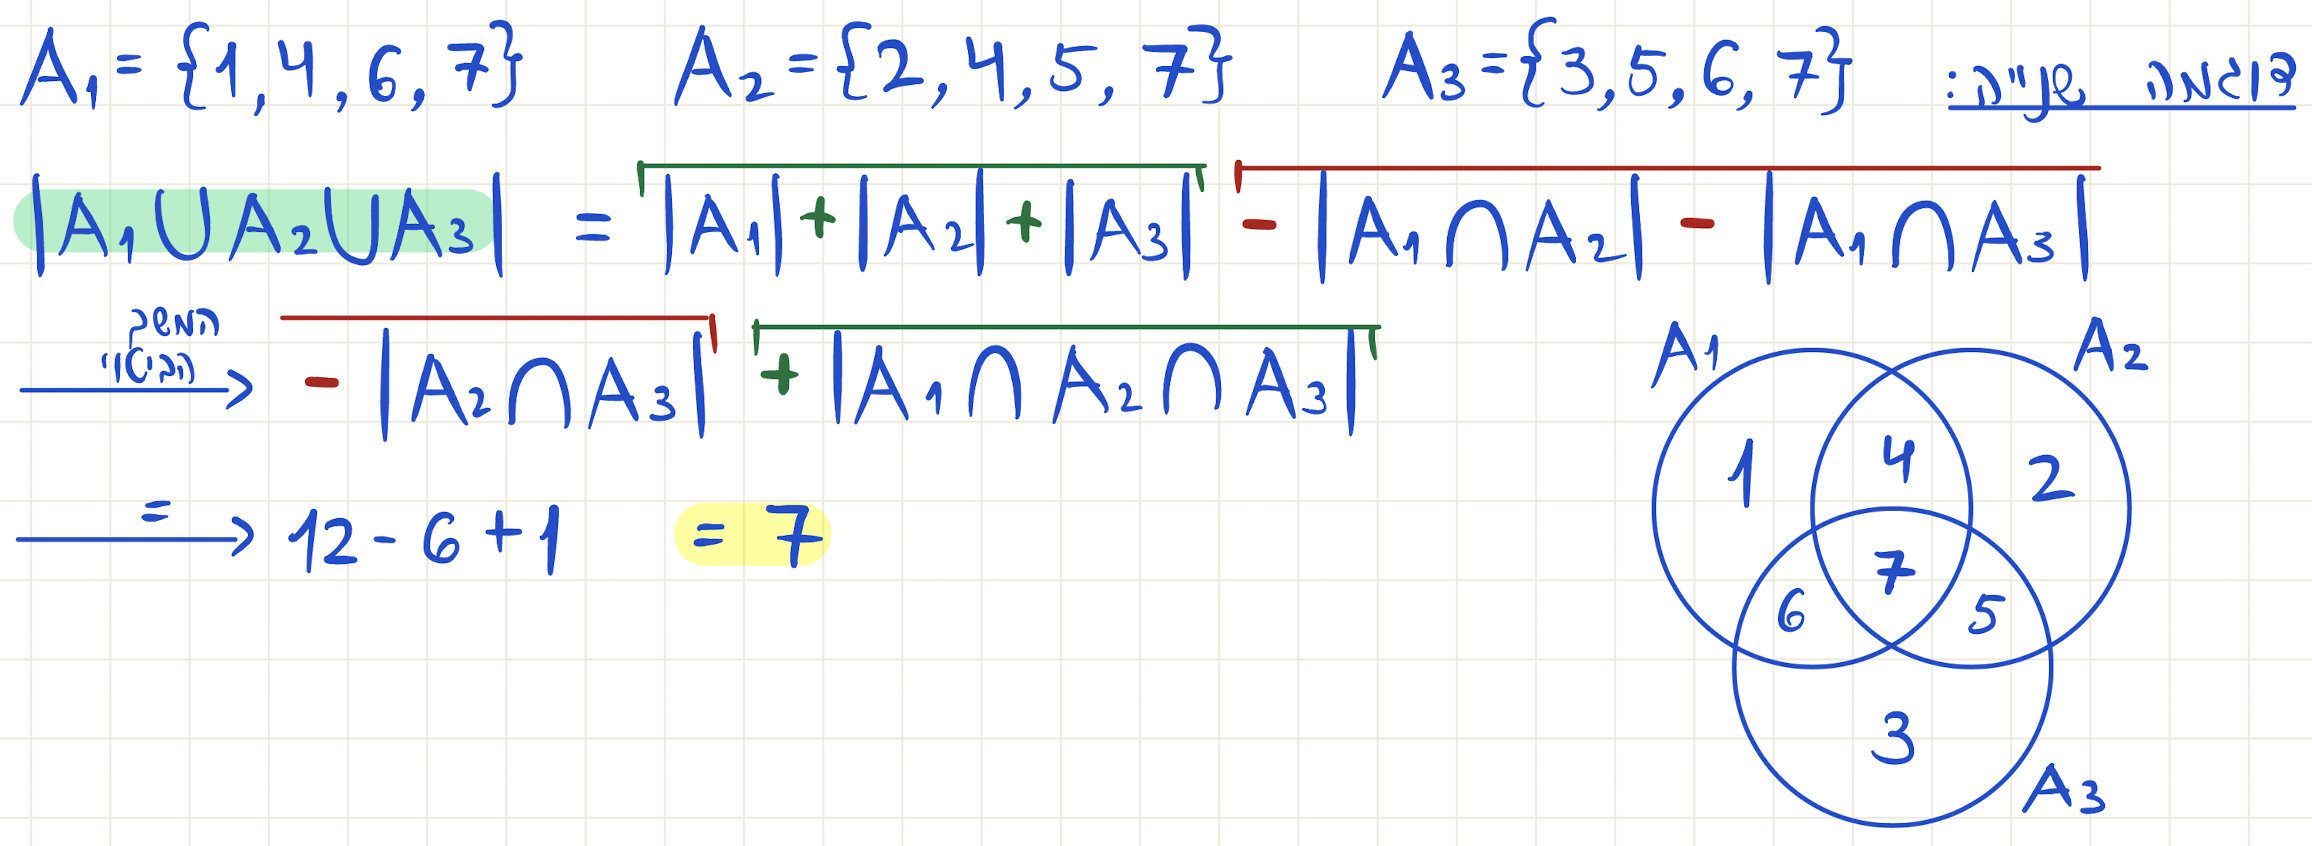 דוגמה שנייה: A₁ = {1, 4, 6, 7} A₂ = {2, 4, 5, 7} A₃ = {3, 5, 6, 7}
|A₁ ∪ A₂ ∪ A₃| = |A₁| + |A₂| + |A₃| - |A₁ ∩ A₂| - |A₁ ∩ A₃|
המשך
הביטוי
→ - |A₂ ∩ A₃| + |A₁ ∩ A₂ ∩ A₃|
= → 12 - 6 + 1 = 7
A₁ A₂
1 4 2
7
6 5
3
A₃